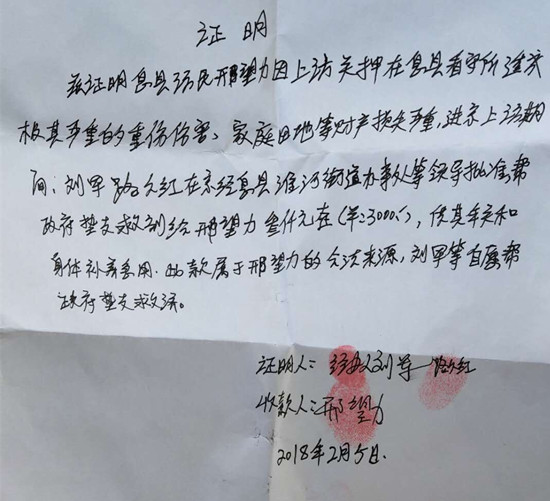 证 明
兹证明息县访民邢望力因上访关押在息县看守所遭受
极其严重的重伤伤害、家庭田地等财产损失严重,进京上访期
间,刘军路久红在京经息县淮河街道办事处等领导批准帮
政府垫支救助给邢望力叁仟元在(¥:3000.),供其年关和
身体补养急用.此款属于邢望力的合法来源,刘军等自愿帮
政府垫支救济。
证明人:经办人刘军 路久红
收款人:邢望力
2018年2月5日.